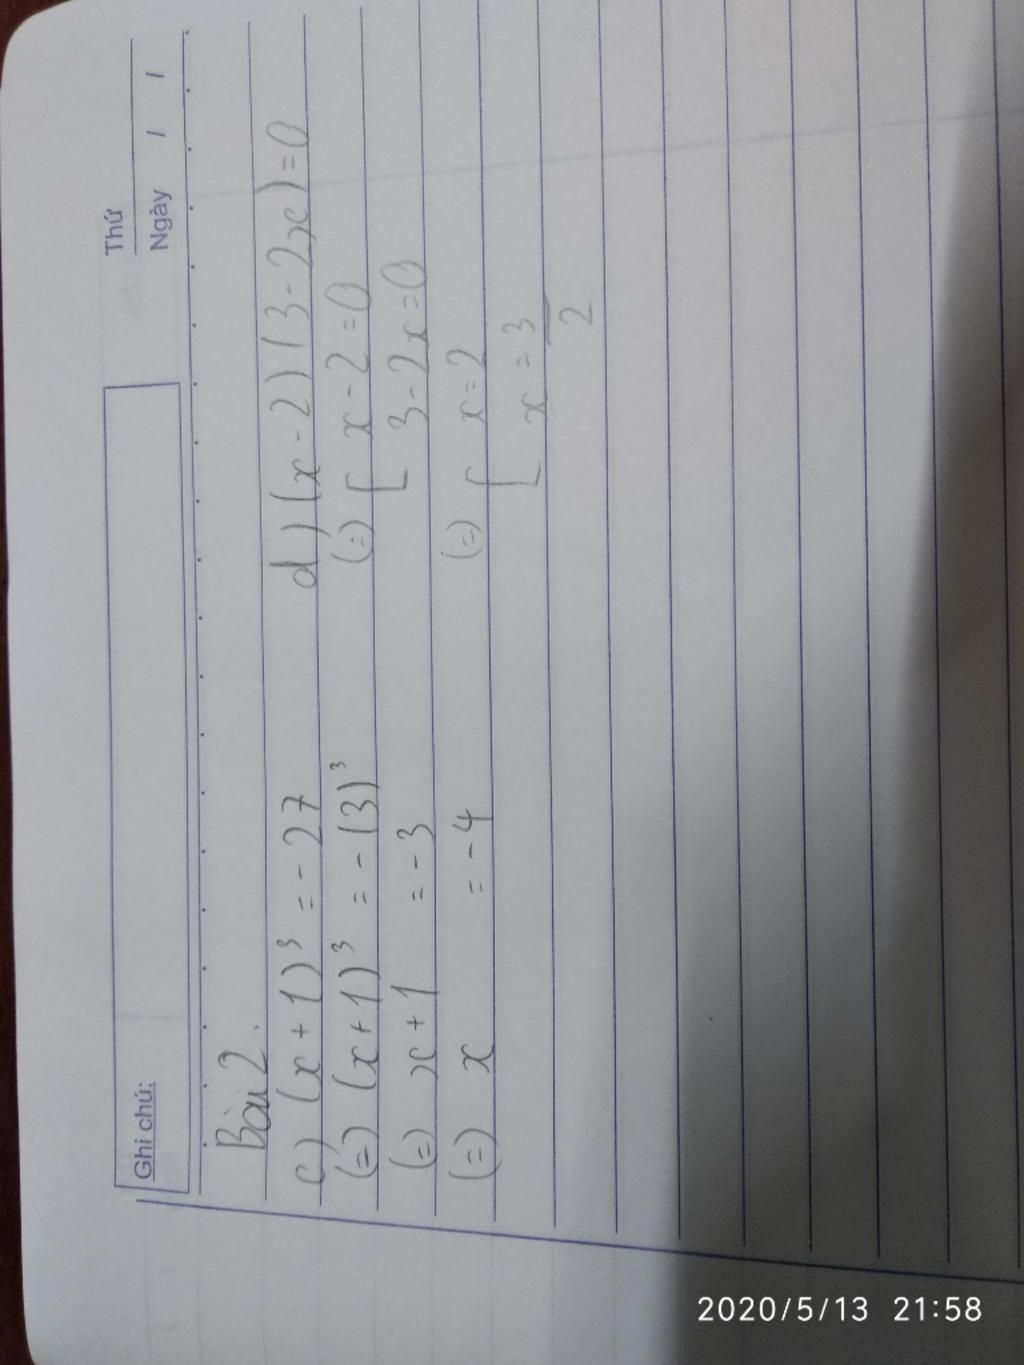 Ghi chú:
Thứ
Ngày / /
Bài 2.
c) (x + 1)³ = - 27
(=) (x + 1)³ = - (3)³
(=) x + 1 = - 3
(=) x = - 4
d) (x - 2) (3 - 2x) = 0
(=) [ x - 2 = 0
3 - 2x = 0
(=) [ x = 2
x = 3
2
2020/5/13 21:58